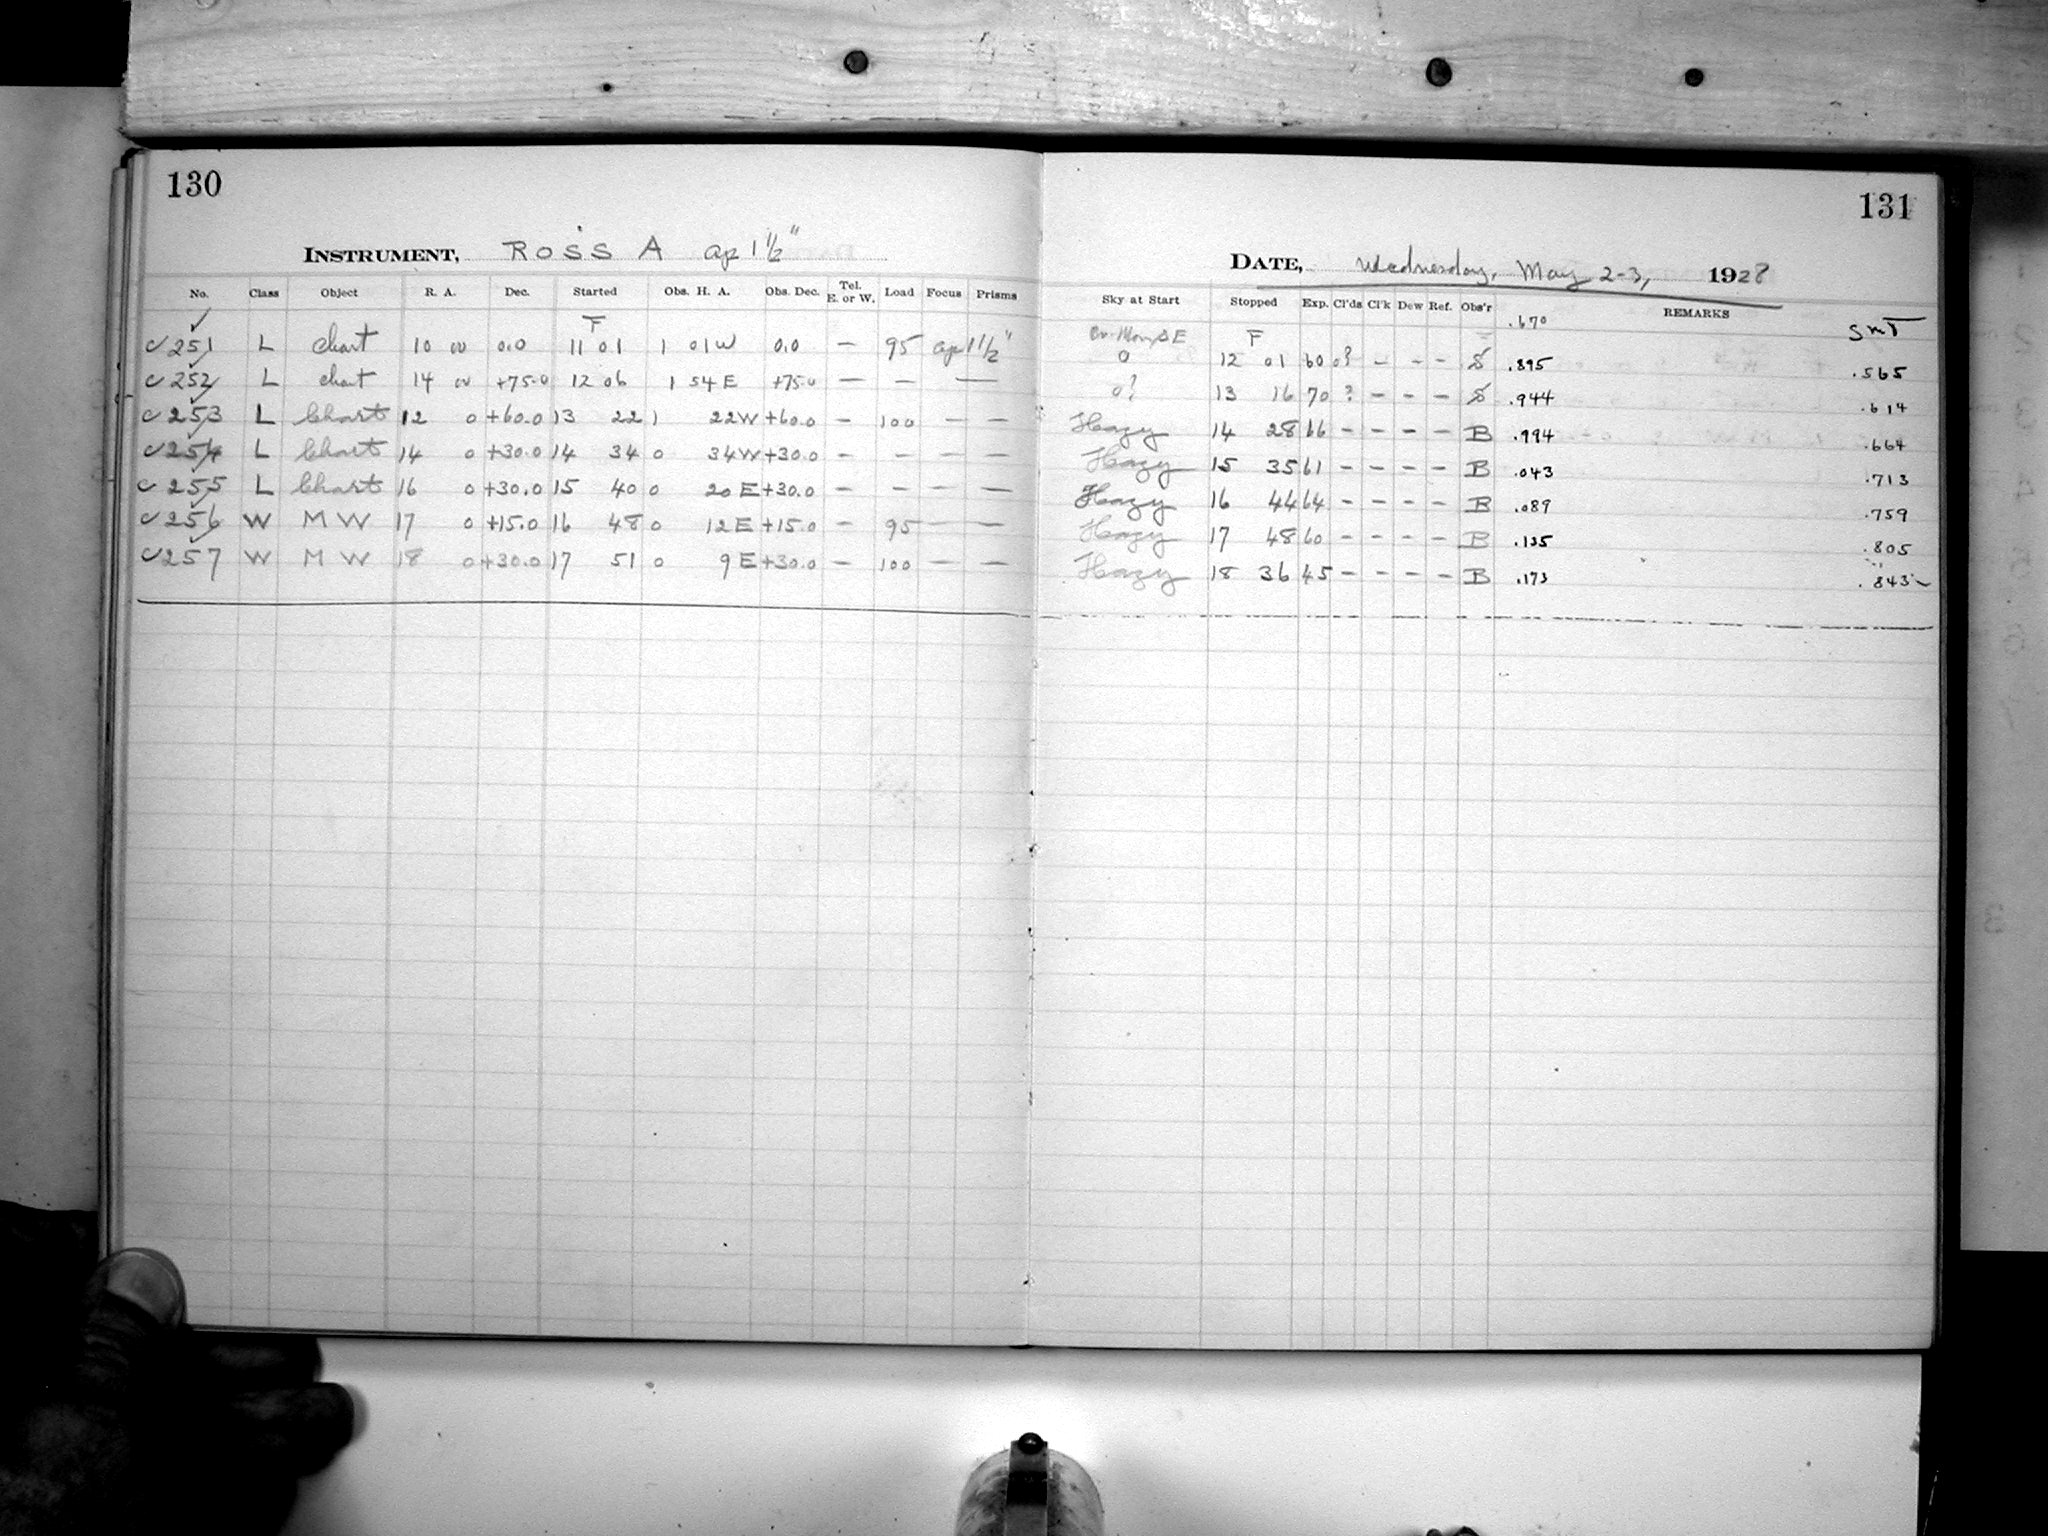 130
INSTRUMENT, ROSS A ap 1 1/2"
No. Class Object R. A. Dec. Started Obs. H. A. Obs. Dec. Tel. E. or W. Load Focus Prisms
F
✓251 L chart 10 00 0.0 11 01 1 01W 0.0 — 95 ap 1 1/2"
✓252 L chart 14 00 +75.0 12 06 1 54 E +75.0 — — —
✓253 L Chart 12 0 +60.0 13 22 1 22W +60.0 - 100 — —
✓254 L Chart 14 0 +30.0 14 34 0 34W +30.0 - - — —
✓255 L Chart 16 0 +30.0 15 40 0 20 E +30.0 - - — —
✓256 W M W 17 0 +15.0 16 48 0 12 E +15.0 - 95 — —
✓257 W M W 18 0 +30.0 17 51 0 9 E +30.0 — 100 — —
131
DATE, Wednesday, May 2-3, 1928
Sky at Start Stopped Exp. Cl'ds Cl'k Dew Ref. Obs'r REMARKS
.670 SMT
SE F
0 12 01 60 0? — - - S .895 .565
0? 13 16 70 ? - - - S .944 .614
Hazy 14 28 66 - - - - B .994 .664
Hazy 15 35 61 - - - - B .043 .713
Hazy 16 44 64 - - - - B .089 .759
Hazy 17 48 60 - - - - B .135 .805
Hazy 18 36 45 - - - - B .173 .843